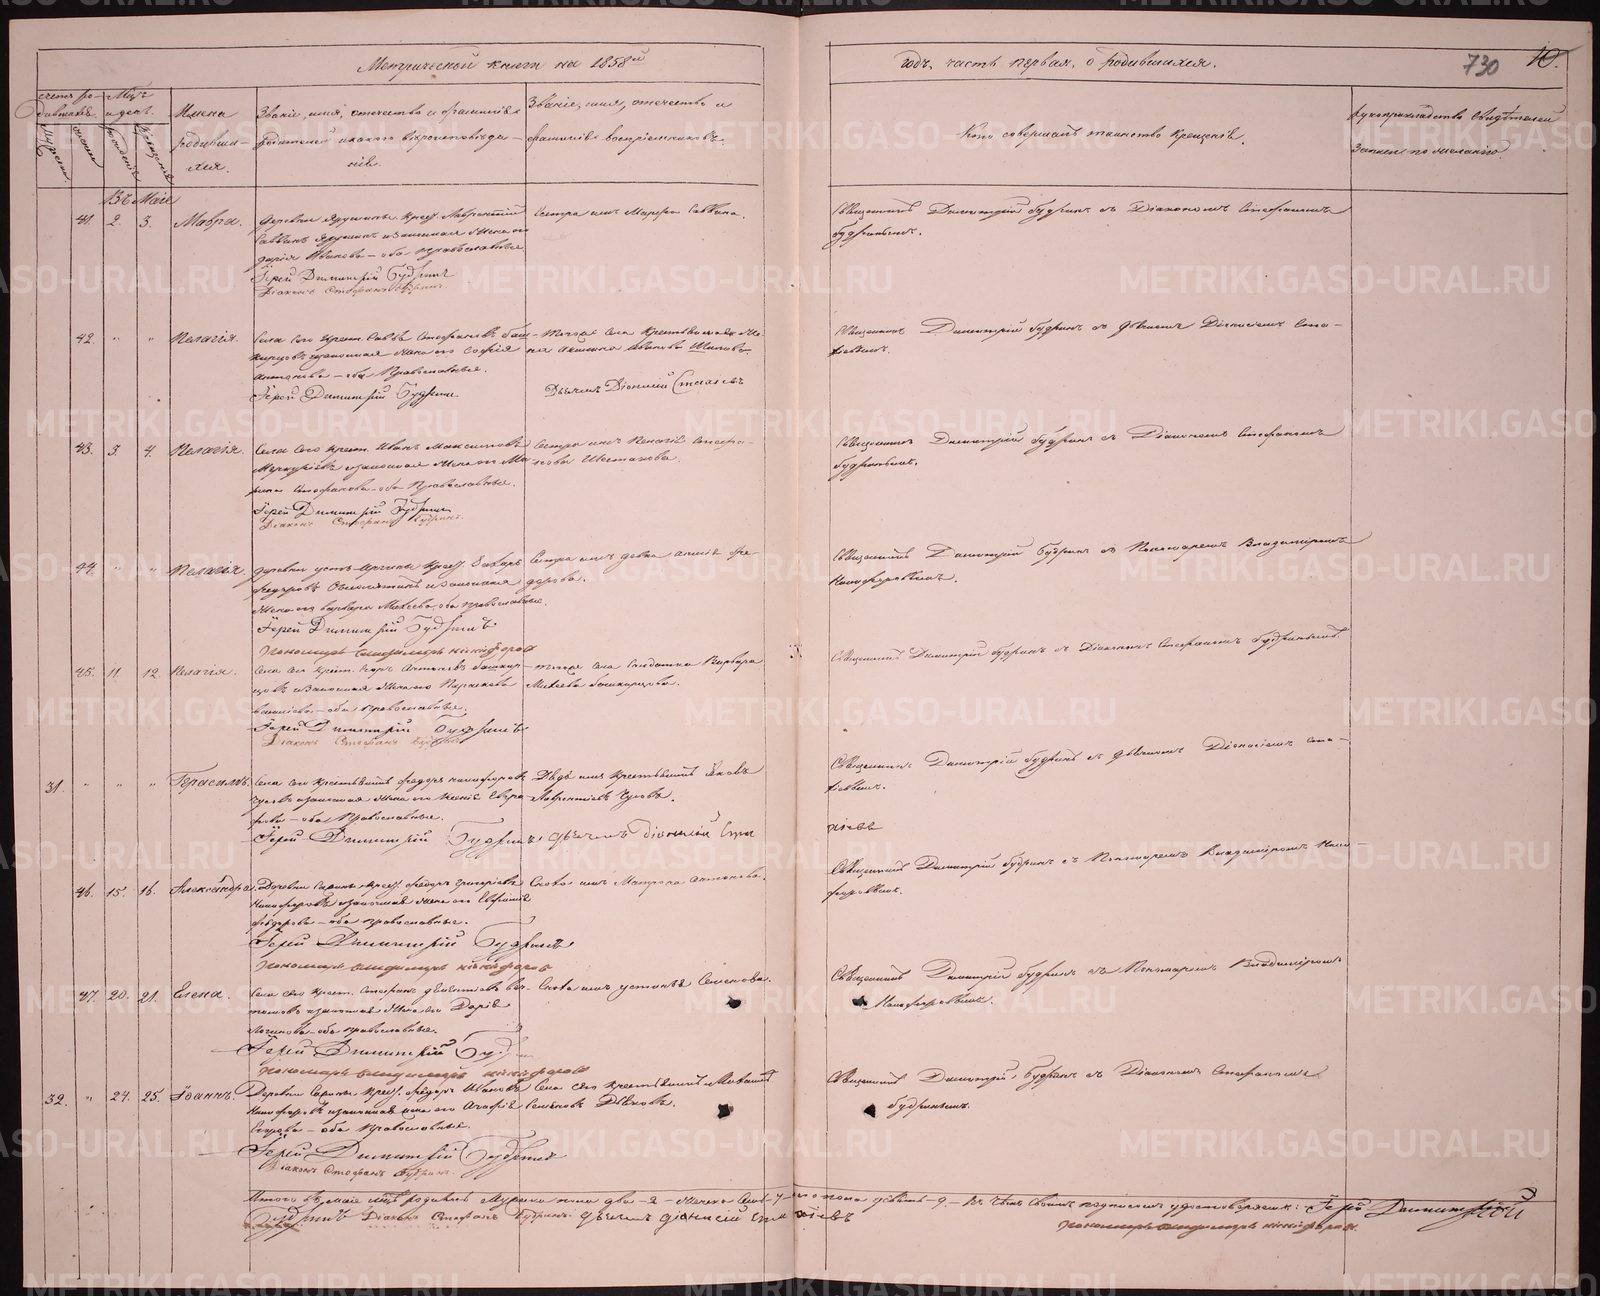 Метрической книги на 1858й
годъ, часть первая, о родившихся.
730
10.
Счетъ родившихся.
Мужеска.
женска.
Мѣс. и день.
рожденія
крещенія
Имена
родивши-
хся.
Званіе, имя, отчество и фамилія
родителей и какого вѣроисповѣда-
нія.
Званіе, имя, отчество и
фамилія воспріемниковъ.
Кто совершалъ таинство крещенія.
Рукоприкладство свидѣтелей
записи по желанію.
Въ Маіѣ
41. 2. 3. Мавра.
Саввинъ законная жена его
Дарія Иванова – оба православные
Іерей Димитрій Будринъ
Діаконъ Стефанъ Будринъ.
Сестра ихъ Марѳа Саввина.
Священникъ Димитрій Будринъ съ Діакономъ Стефаномъ
Будринымъ.
42. " " Пелагія.
Села сего крест. Савва Стефановъ Баш-
кирцовъ и законная жена его Софія
Антонова – оба православные.
Іерей Димитрій Будринъ
Тогоже села крестьянская же-
на Иванова Шипова.
Дьячекъ Діонисій Стахіевъ
Священникъ Димитрій Будринъ съ дьячкомъ Діонисіемъ Ста-
хіевымъ.
43. 3. 4. Пелагія.
Села сего крест. Иванъ Максимовъ
Меркурьевъ и законная жена его Ма-
рина Стефанова – оба православные.
Іерей Димитрій Будринъ
Діаконъ Стефанъ Будринъ.
Сестра ихъ Пелагія Стефа-
нова Шестакова.
Священникъ Димитрій Будринъ съ Діакономъ Стефаномъ
Будринымъ.
44. " " Пелагія.
Деревни Усть-Аргины крест. Захаръ
Федоровъ и законная
жена его Варвара Михеева, оба православные.
Іерей Димитрій Будринъ
Пономарь Владиміръ Никифоровъ
Сестра ихъ девка Анна Фе-
дорова.
Священникъ Димитрій Будринъ съ Пономаремъ Владиміромъ
Никифоровымъ.
45. 11. 12. Пелагія.
Села сего крест. Егоръ Антоновъ Башкир-
цовъ и законная жена его Парасковья
Васильева – оба православные.
Іерей Димитрій Будринъ
Діаконъ Стефанъ Будринъ
Тогоже села солдатка Варвара
Михеева Башкирцова.
Священникъ Димитрій Будринъ съ Діакономъ Стефаномъ Будринымъ.
31. " " " Герасимъ.
Села сего крестьянинъ Федоръ Никифоровъ
Чусовъ и законная жена его Ксенія Евгра-
фова – оба Православные.
Іерей Димитрій Будринъ. Дьячекъ Діонисій Ста
хіевъ
Дѣдъ ихъ крестьянинъ Іаковъ
Лаврентіевъ Чусовъ.
Священникъ Димитрій Будринъ съ дьячкомъ Діонисіемъ Ста-
хіевымъ.
46. 15. 16. Александра.
Деревни Сарины крест. Федоръ Григорьевъ
Никифоровъ и законная жена его Евфимія
Федорова – оба православные.
Іерей Димитрій Будринъ
Пономарь Владиміръ Никифоровъ
Сноха ихъ Матрона Антонова.
Священникъ Димитрій Будринъ съ Пономаремъ Владиміромъ Ники-
форовымъ.
47. 20. 21. Елена.
Села сего крест. Стефанъ
и законная жена его Дарія
Логинова – оба православные.
Іерей Димитрій Будр
Пономарь Владиміръ Никифоровъ
Сноха ихъ Устинія Семенова.
Священникъ Димитрій Будринъ съ Пономаремъ Владиміромъ
Никифоровымъ.
32. " 24. 25. Іоаннъ.
Деревни Сарины крест. Федоръ Ивановъ
Никифоровъ и законная жена его Агафія
Егорова – оба Православные.
Іерей Димитрій Будринъ
Діаконъ Стефанъ Будринъ.
Села сего крестьянинъ
Семеновъ Дьяковъ.
Священникъ Димитрій Будринъ съ Діакономъ Стефаномъ
Будринымъ.
Итого въ маіѣ мѣсяцѣ родилось мужеска пола два – 2 – женска пола девять – 9 – въ чемъ своимъ подписомъ удостовѣряемъ: Іерей Димитрій
Будринъ Діаконъ Стефанъ Будринъ. Дьячекъ Діонисій Стахіевъ
Пономарь Владиміръ Никифоровъ.
METRIKI.GASO-URAL.RU